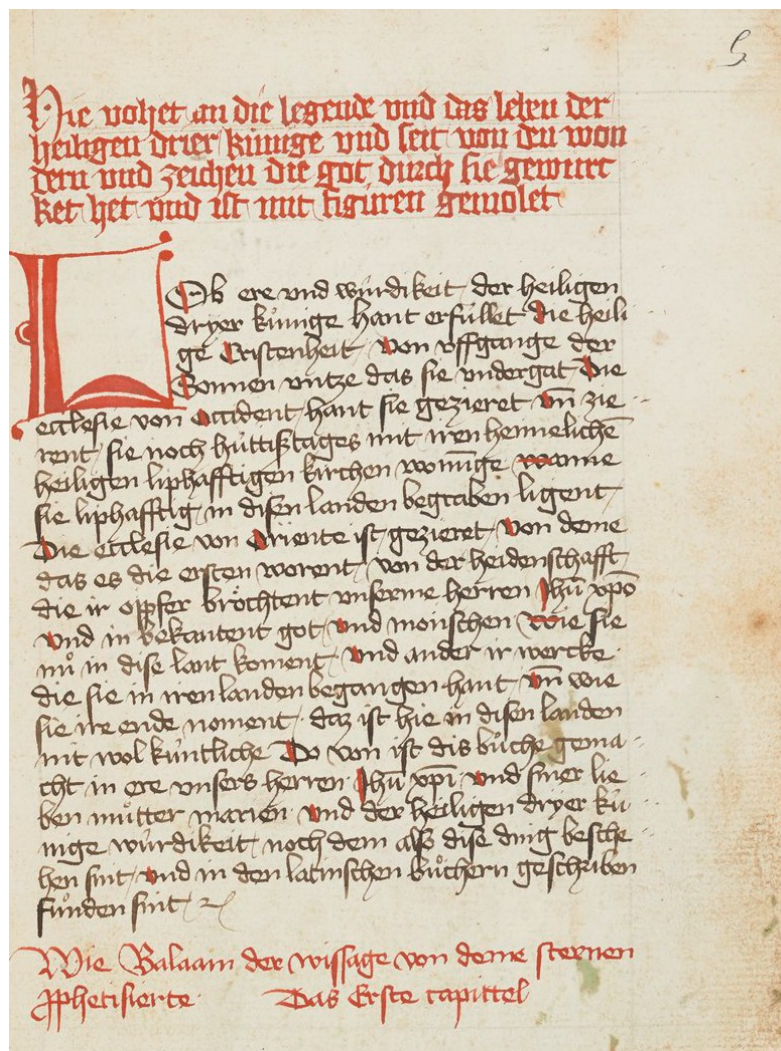 5
Hie vohet an die legende vnd das leben der
heiligen drier kúnige vnd seit von den won
dern vnd zeichen die got durch sie gewurc
ket het vnd ist mit figúren gemolet
Lob ere vnd wúrdikeit der heiligen
dryer kúnige hant erfúllet die heili
ge Cristenheit von vffgange der
Sonnen vntze das sie vndergat Die
ecclesie von Occident hant sie gezieret vn̄ zie
rent sie noch húttißtages mit iren hemelichē
heiligen liphafftigen kirchen wonūge wanne
sie liphafftig in disen landen begraben ligent
Die ecclesie von Oriente ist gezieret von deme
das es die ersten worent von der heidenschafft
die ir opfer bröchtent vnserme herren Jhū xp̄o
vnd in bekantent got vnd mönschen Wie sie
nů in dise lant koment vnd ander ir wercke
die sie in iren landen begangen hant vn̄ wie
sie ire ende noment daz ist hie in disen landen
nit wol kúntliche Do von ist dis bůche gema
cht in ere vnsers herren Jhū xp̄i vnd siner lie
ben můtter marien vnd der heiligen dryer kú
nige wúrdikeit noch dem also dise ding besche
hen sint vnd in den latinschen bůchern geschriben
funden sint
Wie Balaam der wissage von deme sternen
ꝓphetisierte Das Erste capittel